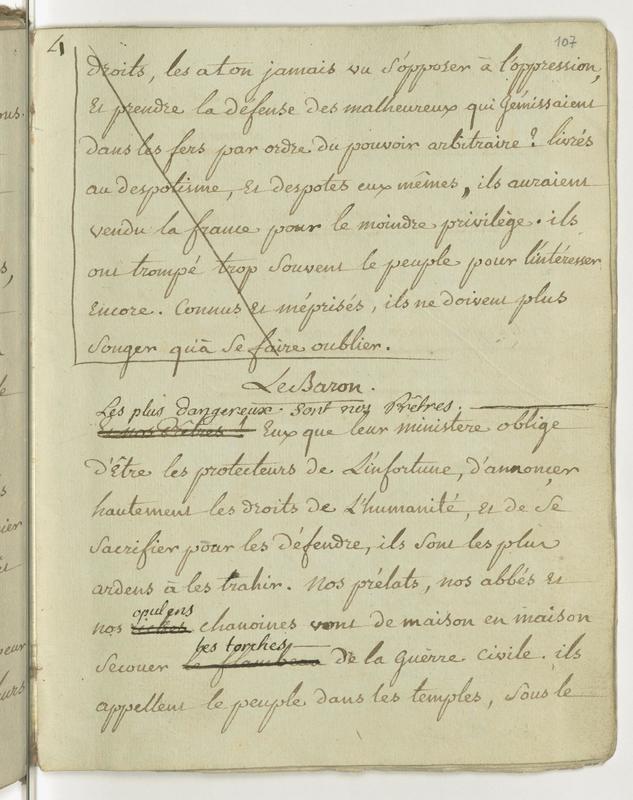 4
107
droits, les aton jamais vu s'opposer à l'oppression,
Et prendre la défense des malheureux qui gémissaient
dans les fers par ordre du pouvoir arbitraire ? livrés
au despotisme, Et despotes eux mêmes, ils auraient
vendu la france pour le moindre privilège. ils
ont trompé trop souvent le peuple pour l'intéresser
Encore. Connus Et méprisés, ils ne doivent plus
songer qu'à se faire oublier.
Le Baron.
Les plus dangereux sont nos Prêtres.
Et nos Prêtres ! Eux que leur ministere oblige
d'Être les protecteurs de L'infortune, d'annoncer
hautement les droits de L'humanité, Et de se
sacrifier pour les défendre, ils sont les plus
ardens à les trahir. Nos prélats, nos abbés Et
opulens
nos riches chanoines vont de maison en maison
les torches
secouer le flambeau de la Guerre civile. ils
appellent le peuple dans les temples, sous le